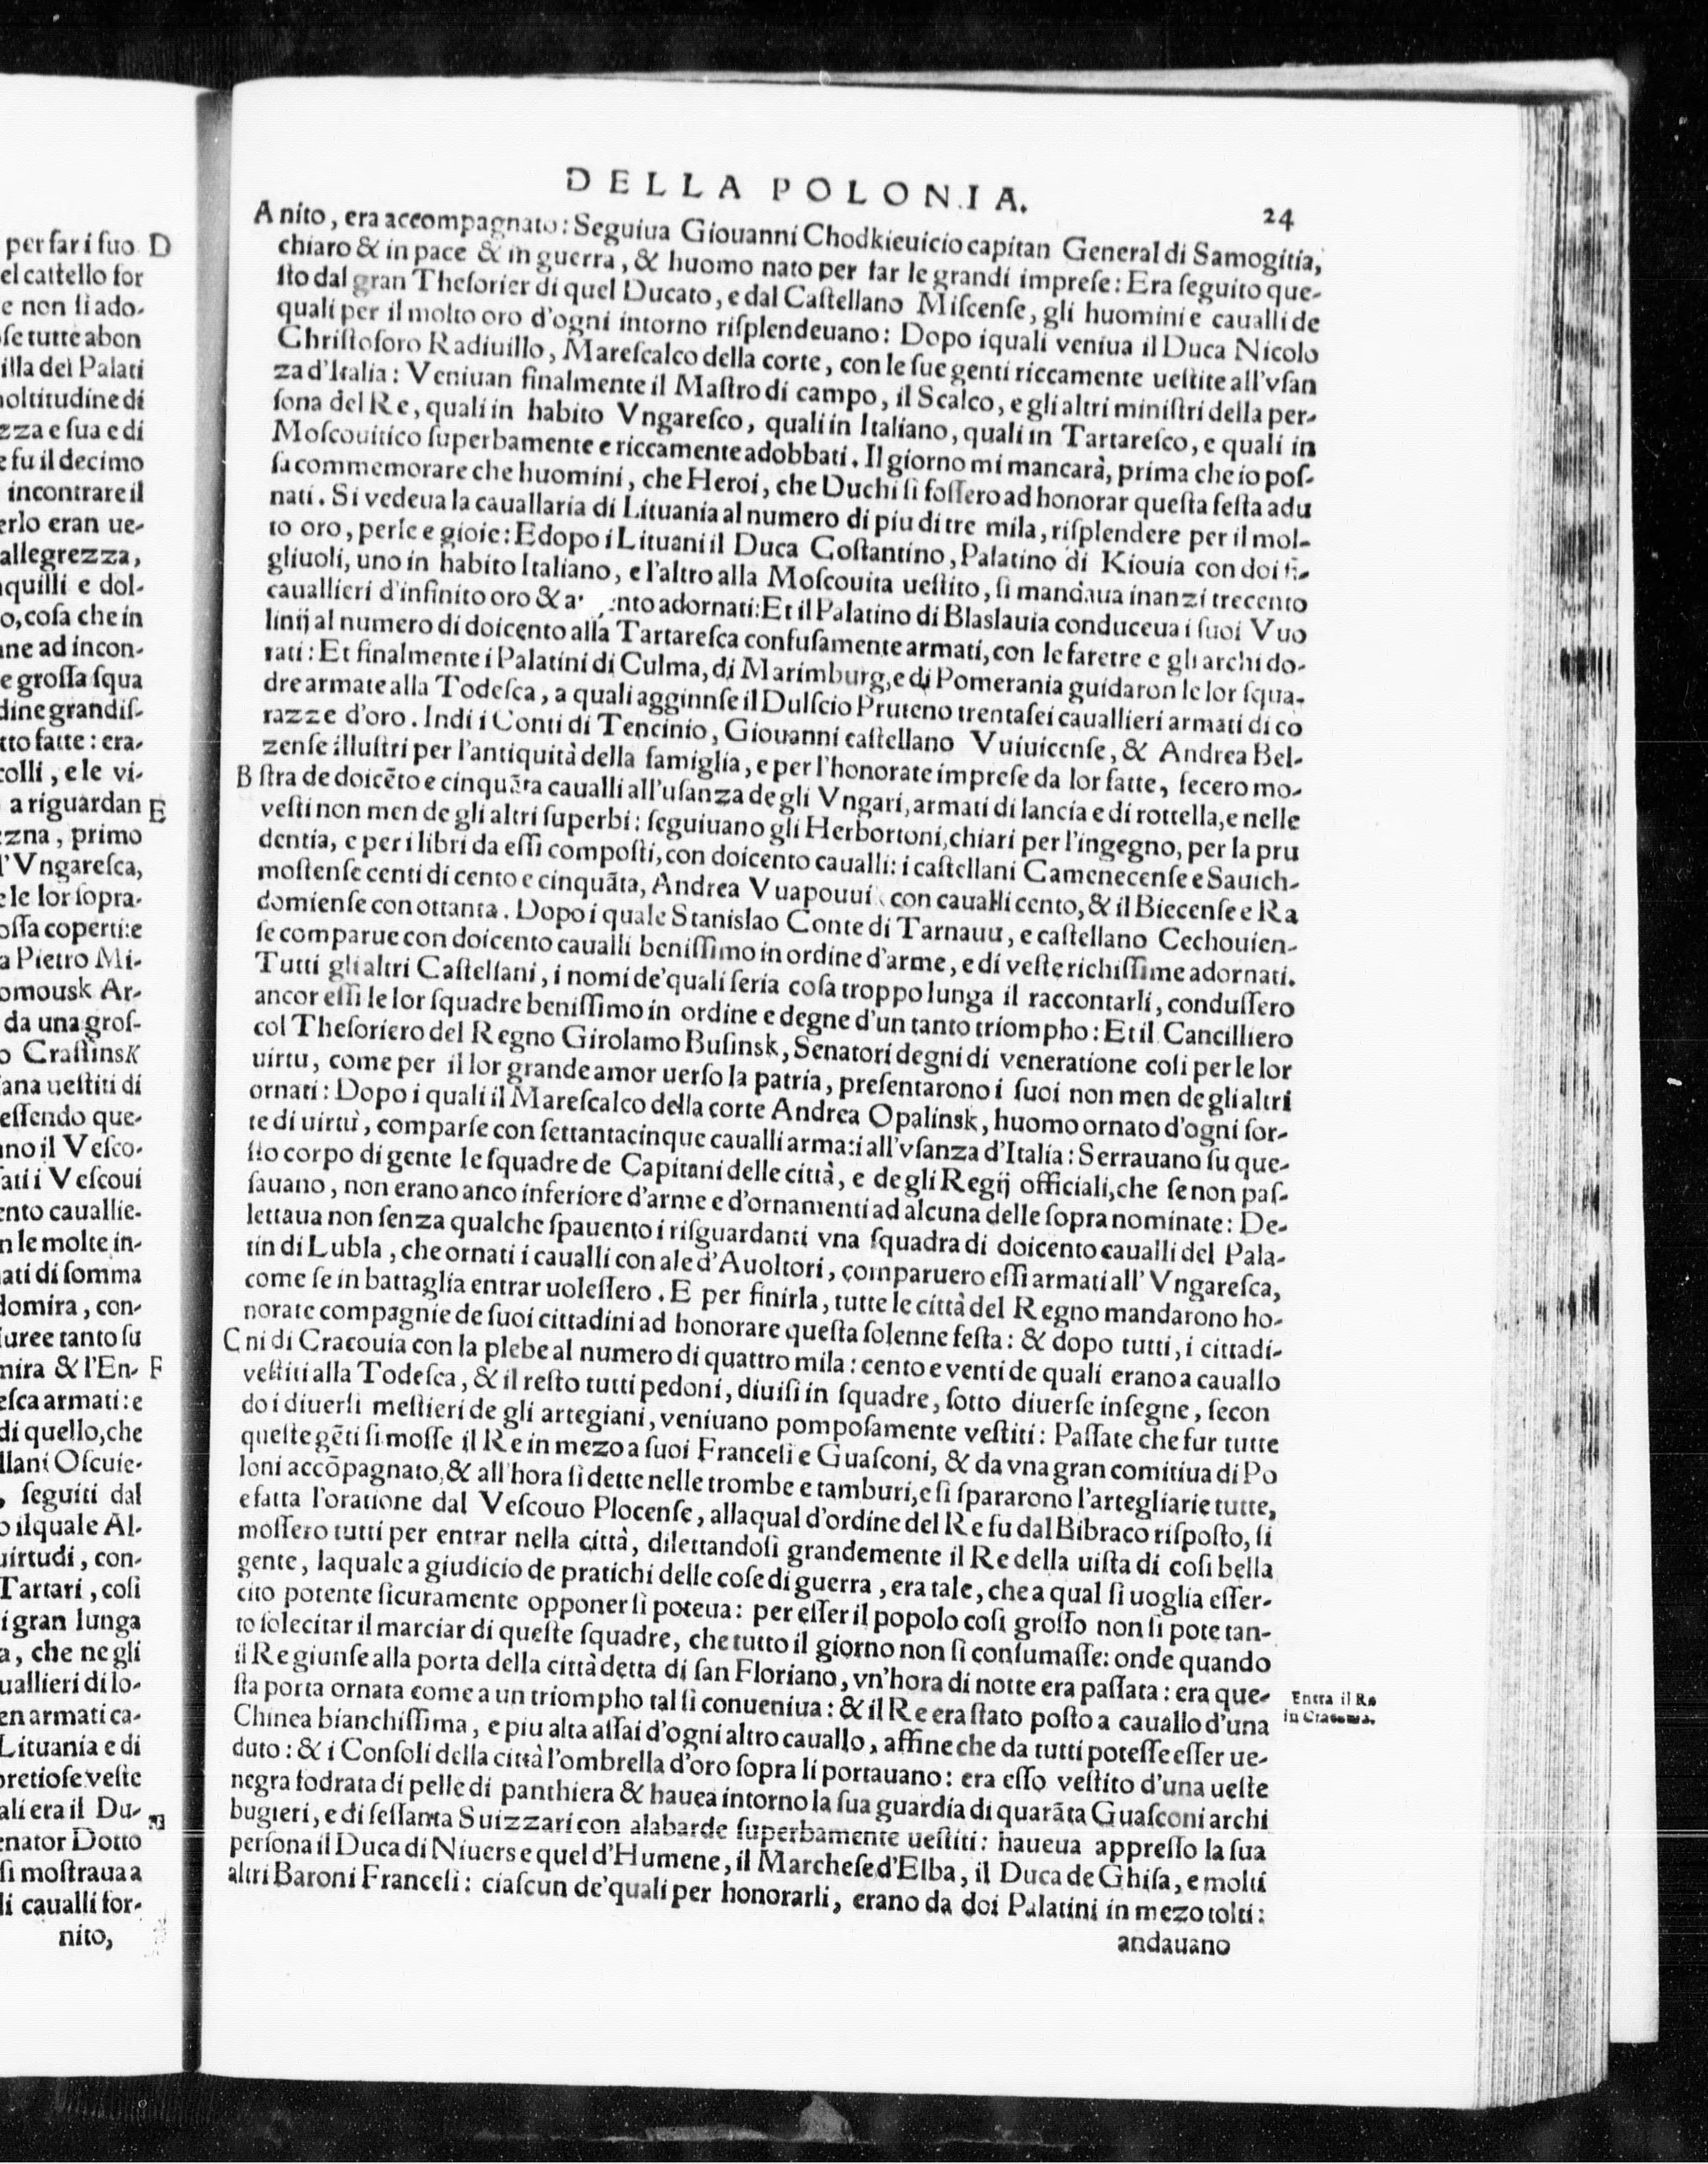 DELLA POLONIA.
24
A nito, era accompagnato: Seguiua Giouanni Chodkieuicio capitan General di Samogitia,
chiaro & in pace & in guerra, & huomo nato per far le grandi imprese: Era seguito que-
sto dal gran Thesorier di quel Ducato, e dal Castellano Miscense, gli huomini e caualli de
quali per il molto oro d'ogni intorno risplendeuano: Dopo iquali veniua il Duca Nicolo
Christoforo Radiuillo, Marescalco della corte, con le sue genti riccamente uestite all'vsan
za d'Italia: Veniuan finalmente il Mastro di campo, il Scalco, e gli altri ministri della per-
sona del Re, quali in habito Vngaresco, quali in Italiano, quali in Tartaresco, e quali in
Moscouitico superbamente e riccamente adobbati. Il giorno mi mancarà, prima che io pos-
sa commemorare che huomini, che Heroi, che Duchi si fossero ad honorar questa festa adu
nati. Si vedeua la cauallaria di Lituania al numero di piu di tre mila, risplendere per il mol-
to oro, perle e gioie: E dopo i Lituani il Duca Costantino, Palatino di Kiouia con doi fi-
gliuoli, uno in habito Italiano, e l'altro alla Moscouita uestito, si mandaua inanzi trecento
cauallieri d'infinito oro & a nto adornati: Et il Palatino di Blaslauia conduceua i suoi Vuo
linij al numero di doicento alla Tartaresca confusamente armati, con le faretre e gli archi do-
rati: Et finalmente i Palatini di Culma, di Marimburg, e di Pomerania guidaron le lor squa-
dre armate alla Todesca, a quali agginnse il Dulscio Pruteno trentasei cauallieri armati di co
razze d'oro. Indi i Conti di Tencinio, Giouanni castellano Vuiuicense, & Andrea Bel-
zense illustri per l'antiquità della famiglia, e per l'honorate imprese da lor fatte, fecero mo-
B stra de doicẽto e cinquãta caualli all'usanza de gli Vngari, armati di lancia e di rottella, e nelle
vesti non men de gli altri superbi: seguiuano gli Herbortoni, chiari per l'ingegno, per la pru
dentia, e per i libri da essi composti, con doicento caualli: i castellani Camenecense e Sauich-
mostense centi di cento e cinquãta, Andrea Vuapouui con caualli cento, & il Biecense e Ra
domiense con ottanta. Dopo i quale Stanislao Conte di Tarnauu, e castellano Cechouien-
se comparue con doicento caualli benissimo in ordine d'arme, e di veste richissime adornati.
Tutti gli altri Castellani, i nomi de' quali seria cosa troppo lunga il raccontarli, condussero
ancor essi le lor squadre benissimo in ordine e degne d'un tanto triompho: Et il Cancilliero
col Thesoriero del Regno Girolamo Businsk, Senatori degni di veneratione cosi per le lor
uirtu, come per il lor grande amor uerso la patria, presentarono i suoi non men de gli altri
ornati: Dopo i quali il Marescalco della corte Andrea Opalinsk, huomo ornato d'ogni sor-
te di uirtù, comparse con settantacinque caualli armati all'vsanza d'Italia: Serrauano su que-
sto corpo di gente le squadre de Capitani delle città, e de gli Regij officiali, che se non pas-
sauano, non erano anco inferiore d'arme e d'ornamenti ad alcuna delle sopra nominate: De-
lettaua non senza qualche spauento i risguardanti vna squadra di doicento caualli del Pala-
tin di Lubla, che ornati i caualli con ale d'Auoltori, comparuero essi armati all'Vngaresca,
come se in battaglia entrar uolessero. E per finirla, tutte le città del Regno mandarono ho-
norate compagnie de suoi cittadini ad honorare questa solenne festa: & dopo tutti, i cittadi-
C ni di Cracouia con la plebe al numero di quattro mila: cento e venti de quali erano a cauallo
vestiti alla Todesca, & il resto tutti pedoni, diuisi in squadre, sotto diuerse insegne, secon
do i diuersi mestieri de gli artegiani, veniuano pomposamente vestiti: Passate che fur tutte
queste gẽti si mosse il Re in mezo a suoi Francesi e Guasconi, & da vna gran comitiua di Po
loni accõpagnato, & all'hora si dette nelle trombe e tamburi, e si spararono l'artegliarie tutte,
e fatta l'oratione dal Vescouo Plocense, alla qual d'ordine del Re fu dal Bibraco risposto, si
mossero tutti per entrar nella città, dilettandosi grandemente il Re della uista di cosi bella
gente, laquale a giudicio de pratichi delle cose di guerra, era tale, che a qual si uoglia esser-
cito potente sicuramente opponersi poteua: per esser il popolo cosi grosso non si pote tan-
to solecitar il marciar di queste squadre, che tutto il giorno non si consumasse: onde quando
il Re giunse alla porta della città detta di san Floriano, vn'hora di notte era passata: era que-
sta porta ornata come a un triompho tal si conueniua: & il Re era stato posto a cauallo d'una
Chinea bianchissima, e piu alta assai d'ogni altro cauallo, affine che da tutti potesse esser ue-
duto: & i Consoli della città l'ombrella d'oro sopra li portauano: era esso vestito d'una ueste
negra fodrata di pelle di panthiera & hauea intorno la sua guardia di quarãta Guasconi archi
bugieri, e di sessanta Suizzari con alabarde superbamente uestiti: haueua appresso la sua
persona il Duca di Niuers e quel d'Humene, il Marchese d'Elba, il Duca de Ghisa, e molti
altri Baroni Francesi: ciascun de' quali per honorarli, erano da doi Palatini in mezo tolti:
andauano
Entra il Re
in Cracouia.
per far i suo D
el castello for
e non si ado-
se tutte abon
illa del Palati
noltitudine di
zza e sua e di
e fu il decimo
incontrare il
erlo eran ue-
allegrezza,
nquilli e dol-
o, cosa che in
ne ad incon-
e grossa squa
dine grandis-
tto fatte: era-
colli, e le vi-
a riguardan E
zna, primo
l'Vngaresca,
e le lor sopra-
ossa coperti: e
a Pietro Mi-
omousk Ar-
da una gros-
o Crasinsk
ana uestiti di
essendo que-
no il Vesco-
ati i Vescoui
ento cauallie-
n le molte in-
ati di somma
domira, con-
iuree tanto su
mira & l'En- F
esca armati: e
di quello, che
llani Oscuie-
, seguiti dal
o ilquale Al-
uirtudi, con-
Tartari, cosi
i gran lunga
a, che ne gli
uallieri di lo-
en armati ca-
Lituania e di
pretiose veste
ali era il Du-
enator Dotto
si mostraua a
li caualli for-
nito,